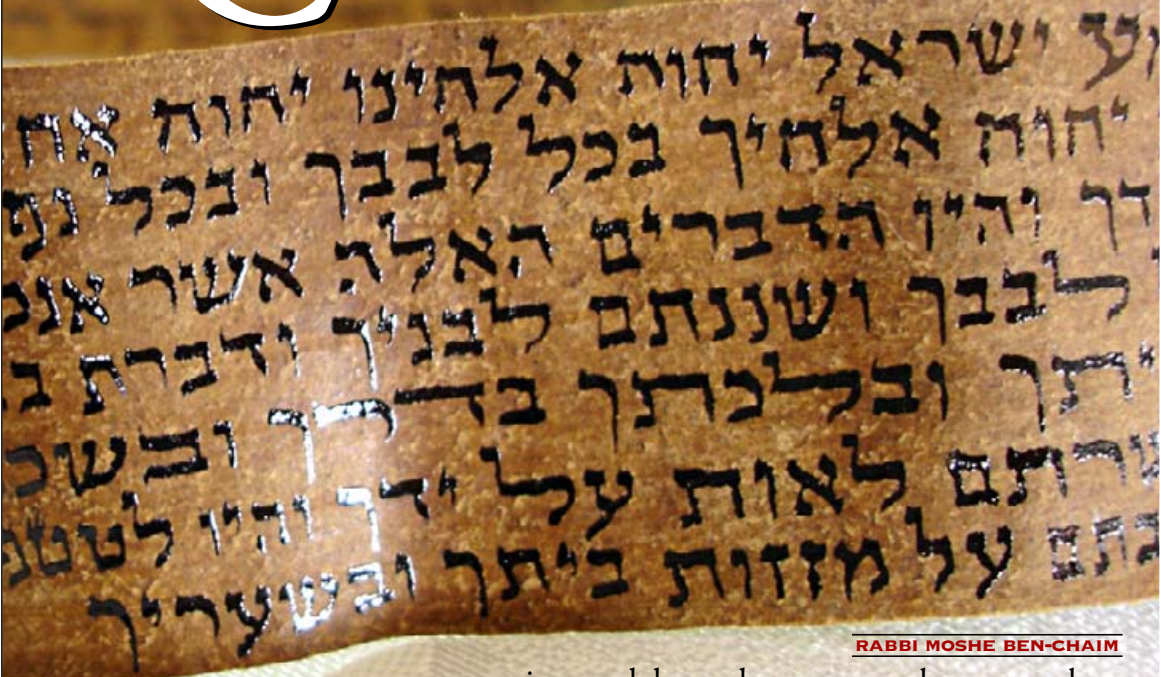 מע ישראל יהוה אלהינו יהוה אח
יהוה אלהיך בכל לבבך ובכל נפ
דך והיו הדברים האלה אשר אנכ
לבבך ושננתם לבניך ודברת ב
יתך ובלכתך בדרך ובשכ
שרתם לאות על ידך והיו לטטפ
בתם על מזזות ביתך ובשעריך
RABBI MOSHE BEN-CHAIM